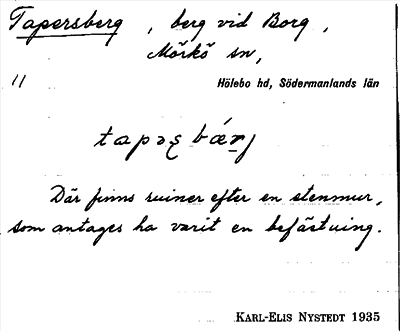 Tapersberg, berg vid Borg,
Mörkö sn,
11 Hölebo hd, Södermanlands län
Där finns ruiner efter en stenmur,
som antages ha varit en befästning.
KARL-ELIS NYSTEDT 1935